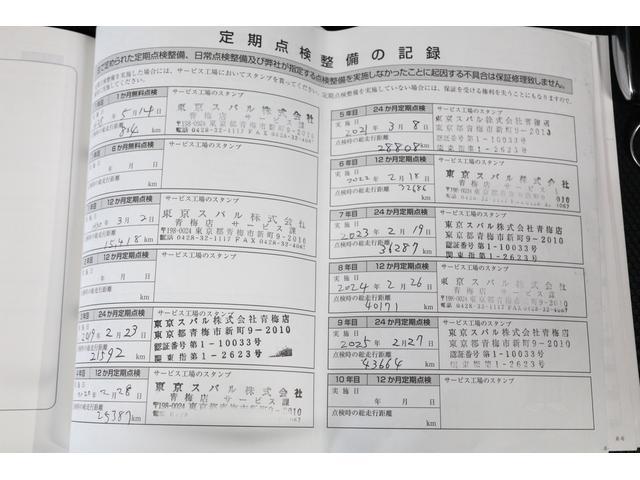 定期点検整備の記録
められた定期点検整備、日常点検整備及び弊社が指定する点検整備を実施しなかったことに起因する不具合は保証修理致しません。
実施した場合には、サービス工場においてスタンプを貰ってください。定期点検整備を実施していない場合には、保証を受ける権利を失うことにもなりますので、
1か月無料点検
サービス工場のスタンプ
5月14日
東京スバル株式会社
青梅店 サービス課
〒198-0024 東京都青梅市新町9-2010
電話 0428-32-1117 FAX 0428-32-
km
6か月無料点検
サービス工場のスタンプ
年 月 日
km
12か月定期点検
サービス工場のスタンプ
年3月2日
東京スバル株式会社
青梅店 サービス課
〒198-0024 東京都青梅市新町9-2010
15418 km
12か月定期点検
サービス工場のスタンプ
年 月 日
km
24か月定期点検
サービス工場のスタンプ
2019年2月23日
東京スバル株式会社青梅店
東京都青梅市新町9-2010
認証番号 第1-10033号
関東指第1-2623号
21592 km
12か月定期点検
サービス工場のスタンプ
2月28日
東京スバル株式会社
青梅店 サービス課
〒198-0024 東京都青梅市新町9-2010
25387 km
5年目 24か月定期点検
サービス工場のスタンプ
実施日
2021年3月8日
東京スバル株式会社青梅店
東京都青梅市新町9-2010
認証番号 第1-10033号
点検時の総走行距離
28808 km
12か月定期点検
サービス工場のスタンプ
実施日
2022年2月18日
東京スバル株式会社
青梅店 サービス
点検時の総走行距離
32686 km
7年目 24か月定期点検
サービス工場のスタンプ
実施日
2023年2月19日
東京スバル株式会社青梅店
東京都青梅市新町9-2010
認証番号 第1-10033号
関東指第1-2623号
点検時の総走行距離
36287 km
8年目 12か月定期点検
サービス工場のスタンプ
実施日
2024年2月26日
東京スバル株式会社
青梅店 サービス課
点検時の総走行距離
40171 km
9年目 24か月定期点検
サービス工場のスタンプ
実施日
2025年2月27日
東京スバル株式会社青梅店
東京都青梅市新町9-2010
認証番号 第1-10033号
点検時の総走行距離
43664 km
10年目 12か月定期点検
サービス工場のスタンプ
実施日
年 月 日
点検時の総走行距離
km